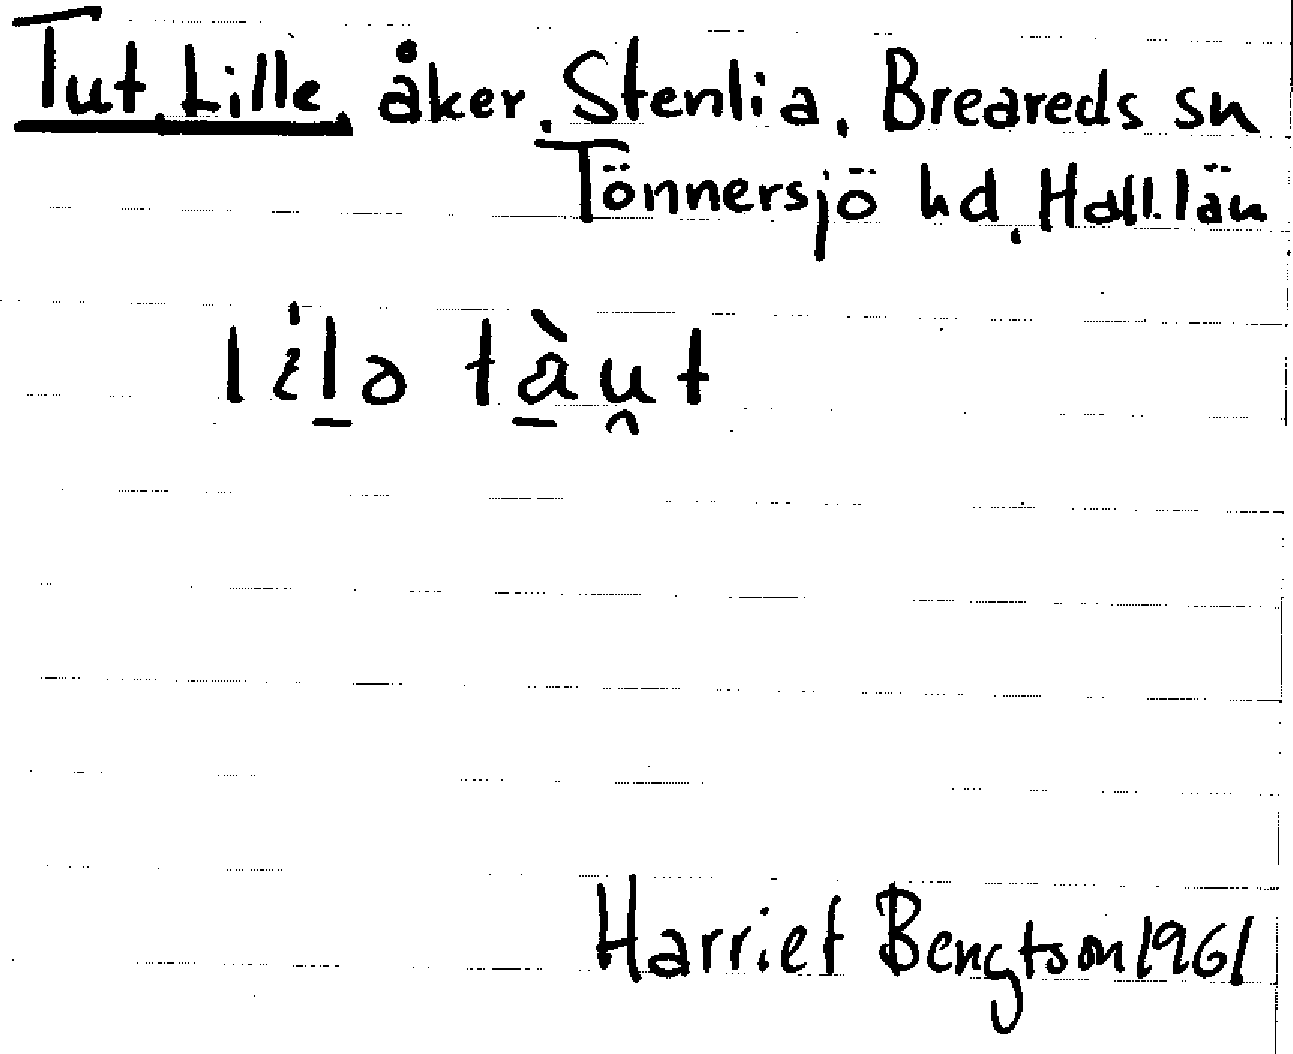 Tut, Lille, åker, Stenlia, Breareds sn
Tönnersjö hd, Hall. län
lílə tà̠u̯t
Harriet Bengtson 1961